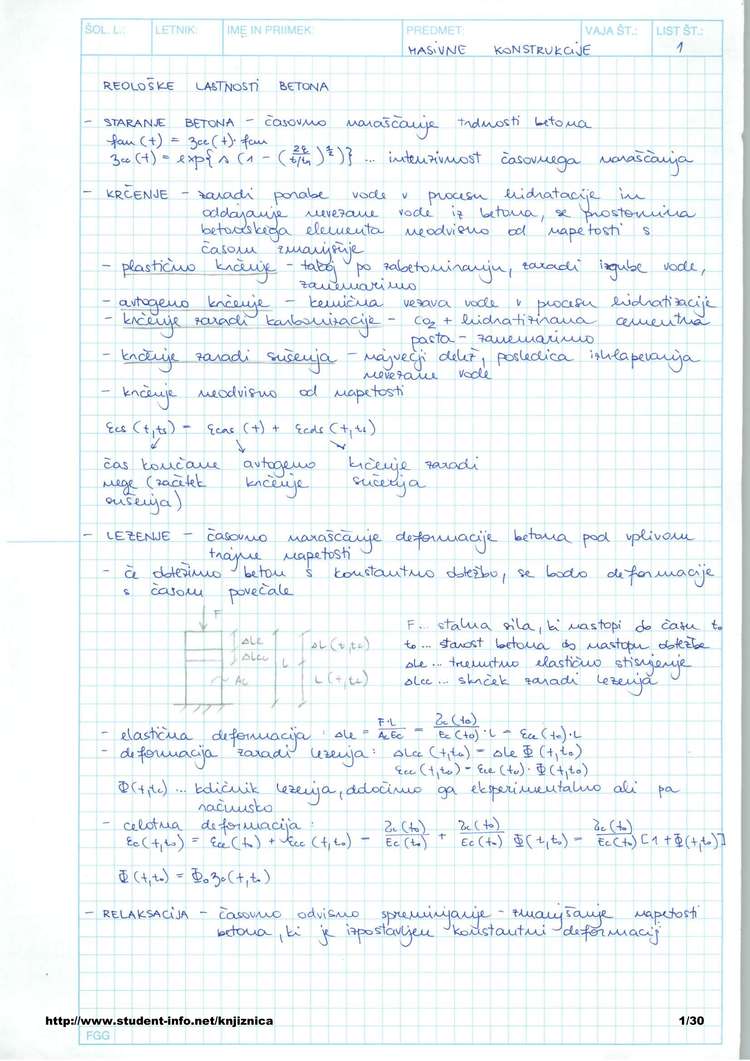 ŠOL. L.: LETNIK: IME IN PRIIMEK: PREDMET: VAJA ŠT.: LIST ŠT.:
MASIVNE KONSTRUKCIJE 1
REOLOŠKE LASTNOSTI BETONA
- STARANJE BETONA - časovno naraščanje trdnosti betona
fcm (t) = βcc (t) · fcm
βcc (t) = exp{ s (1 - (28/t/t1)^½)} ... intenzivnost časovnega naraščanja
- KRČENJE - zaradi porabe vode v procesu hidratacije in
oddajanje nevezane vode iz betona, se prostornina
betonskega elementa neodvisno od napetosti s
časom zmanjšuje
- plastično krčenje - takoj po zabetoniranju, zaradi izgube vode,
zanemarimo
- avtogeno krčenje - kemična vezava vode v procesu hidratizacije
- krčenje zaradi karbonizacije - CO2 + hidratizirana cementna
pasta - zanemarimo
- krčenje zaradi sušenja - največji delež, posledica izhlapevanja
nevezane vode
- krčenje neodvisno od napetosti
εcs (t,ts) = εcas (t) + εcds (t,ts)
čas končane avtogeno krčenje zaradi
nege (začetek krčenje sušenja
sušenja)
- LEZENJE - časovno naraščanje deformacije betona pod vplivom
trajne napetosti
- če obtežimo beton s konstantno obtežbo, se bodo deformacije
s časom povečale
F
ΔLe
ΔLcc
L
ΔL (t,t0)
L (t,t0)
Ac
F... stalna sila, ki nastopi ob času t0
t0 ... starost betona ob nastopu obtežbe
ΔLe ... trenutno elastično stisnjenje
ΔLcc ... skrček zaradi lezenja
- elastična deformacija : ΔLe = F·L/AcEc = σc (t0)/Ec (t0) · L = εce (t0)·L
- deformacija zaradi lezenja : ΔLcc (t,t0) = ΔLe Φ (t,t0)
εcc (t,t0) = εce (t0) · Φ (t,t0)
Φ (t,t0) ... količnik lezenja, določimo ga eksperimentalno ali pa
računsko
- celotna deformacija :
εc (t,t0) = εce (t0) + εcc (t,t0) = σc (t0)/Ec (t0) + σc (t0)/Ec (t0) Φ (t,t0) = σc (t0)/Ec (t0) [1 + Φ (t,t0)]
Φ (t,t0) = Φ0 βc (t,t0)
- RELAKSACIJA - časovno odvisno spreminjanje - zmanjšanje napetosti
betona, ki je izpostavljen konstantni deformaciji
http://www.student-info.net/knjiznica 1/30
FGG